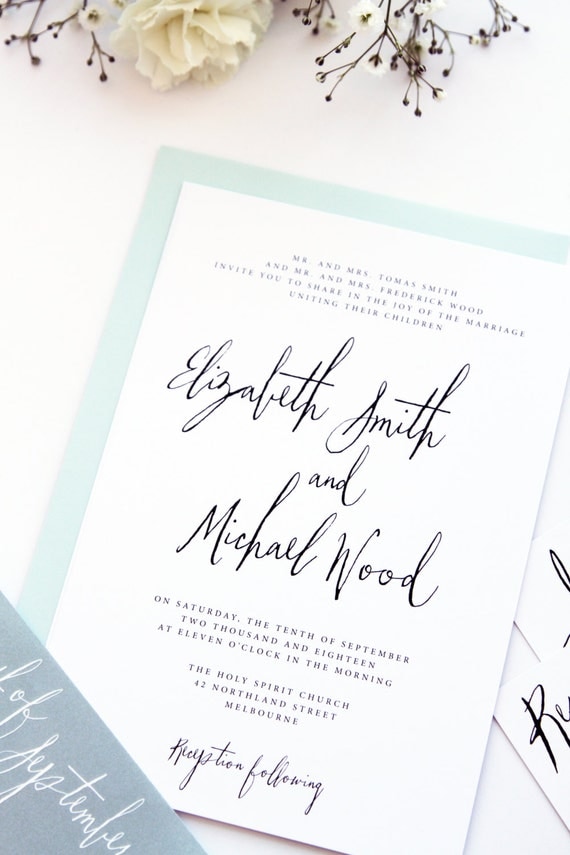 MR. AND MRS. TOMAS SMITH
AND MR. AND MRS. FREDERICK WOOD
INVITE YOU TO SHARE IN THE JOY OF THE MARRIAGE
UNITING THEIR CHILDREN
Elizabeth Smith
and
Michael Wood
ON SATURDAY, THE TENTH OF SEPTEMBER
TWO THOUSAND AND EIGHTEEN
AT ELEVEN O'CLOCK IN THE MORNING
THE HOLY SPIRIT CHURCH
42 NORTHLAND STREET
MELBOURNE
Reception following
of
September